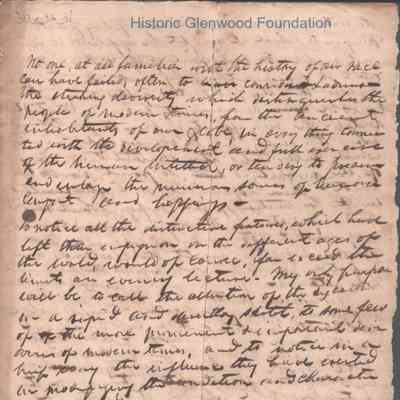 Historic Glenwood Foundation
No one at all familiar with the history of our race
can have failed, often, to
the striking diversity which distinguishes the
people of modern times, for the ancient
inhabitants of our globe, in every thing connec
ted with the development and full exercise
of the human intellect, or tending to
and enlarge the numerous sources of human
comfort and happiness
To notice all the distinctive features, which have
left their impression on the different ages of
the world, would of course, far exceed the
limits an evening lecture. My only purpose
will be, to call the attention of the
in a rapid and sketch, to some few
of the more prominent & important
of modern times, and to notice in a
brief way the influence they have exerted
in modifying the condition and character